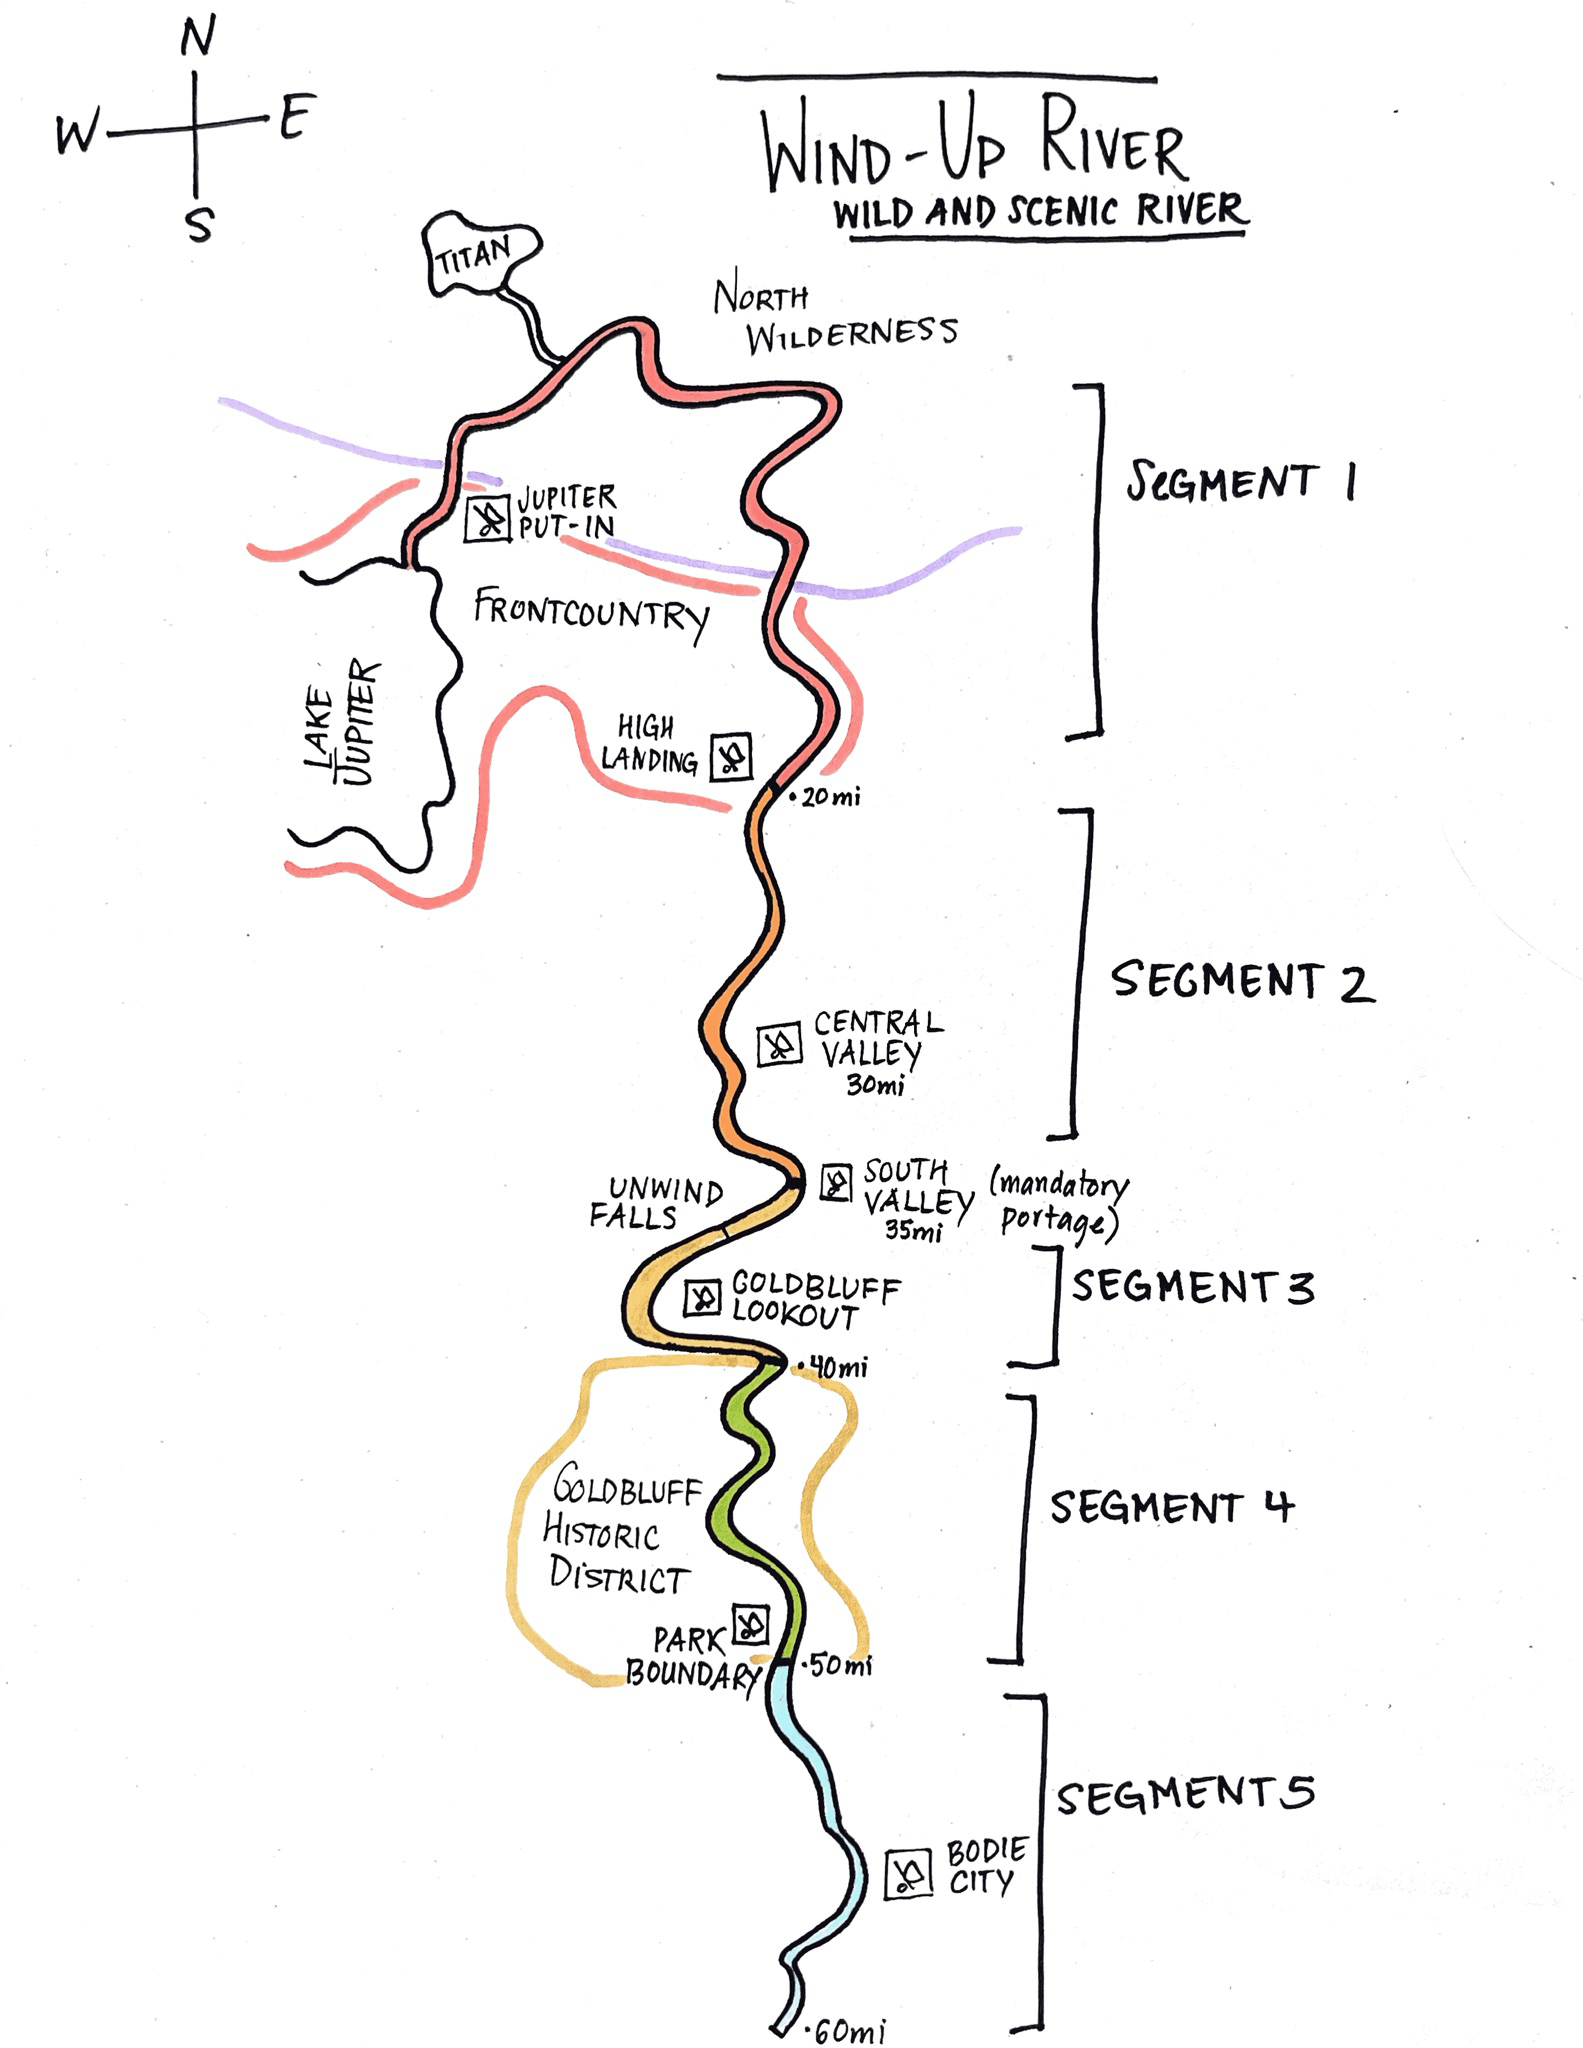 N
W E
S
WIND-UP RIVER
WILD AND SCENIC RIVER
TITAN
NORTH
WILDERNESS
SEGMENT 1
JUPITER
PUT-IN
FRONTCOUNTRY
LAKE
JUPITER
HIGH
LANDING
.20mi
SEGMENT 2
CENTRAL
VALLEY
30mi
UNWIND
FALLS
SOUTH
VALLEY
35mi
(mandatory
portage)
SEGMENT 3
GOLDBLUFF
LOOKOUT
.40mi
GOLDBLUFF
HISTORIC
DISTRICT
SEGMENT 4
PARK
BOUNDARY
.50mi
SEGMENT 5
BODIE
CITY
.60mi